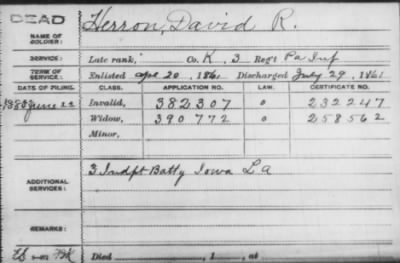 DEAD
Herron, David R.
NAME OF SOLDIER:
SERVICE: Late rank, Co. K, 3 Reg't Pa Inf
TERM OF SERVICE: Enlisted Apr 20, 1861 Discharged July 29, 1861
DATE OF FILING. CLASS. APPLICATION NO. LAW. CERTIFICATE NO.
June 22 Invalid, 382307 o 232247
Widow, 390772 o 258562
Minor,
ADDITIONAL SERVICES: 3 Indpt Batty Iowa L A
REMARKS:
Died , 1 , at